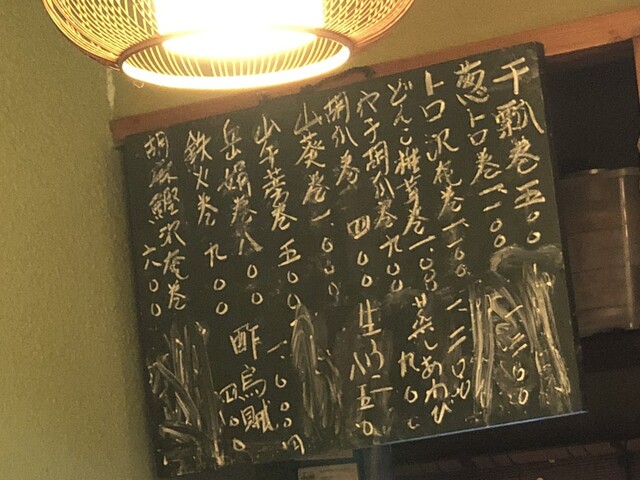 干瓢巻五〇〇
葱トロ巻一、一〇〇
トロ沢庵巻一、一〇〇
どんこ椎茸巻九〇〇
穴子胡瓜巻
胡瓜巻四〇〇
山葵巻一、〇〇〇
山午蒡巻五〇〇
岳娟巻八〇〇
鉄火巻九〇〇
胡麻鰹沢庵巻六〇〇
一、二〇〇
一、二〇〇
蒸しあわび
九〇〇
生うに
八五〇
一、六〇〇円
酢烏賊
四〇〇